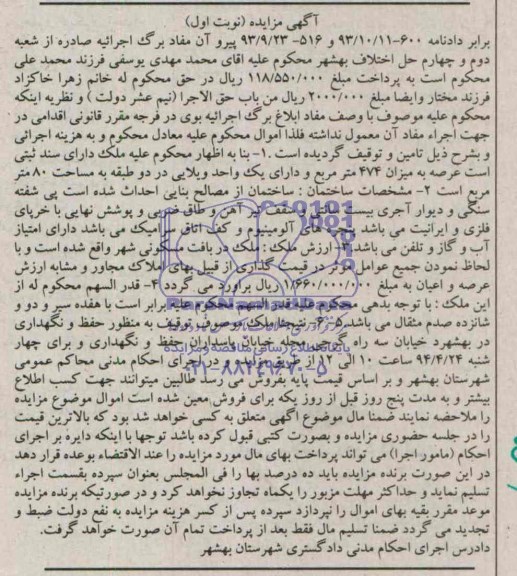 آگهی مزایده (نوبت اول)
برابر دادنامه ۶۰۰-۹۳/۱۰/۱۱ و ۵۱۶- ۹۳/۹/۲۳ پیرو آن مفاد برگ اجرائیه صادره از شعبه
دوم و چهارم حل اختلاف بهشهر محکوم علیه اقای محمد مهدی یوسفی فرزند محمد علی
محکوم است به پرداخت مبلغ ۱۱۸/۵۵۰/۰۰۰ ریال در حق محکوم له خانم زهرا خاکزاد
فرزند مختار وایضا مبلغ ۲۰۰۰/۰۰۰ ریال من باب حق الاجرا (نیم عشر دولت ) و نظریه اینکه
محکوم علیه موصوف با وصف مفاد ابلاغ برگ اجرائیه بوی در فرجه مقرر قانونی اقدامی در
جهت اجراء مفاد آن معمول نداشته فلذا اموال محکوم علیه معادل محکوم و به هزینه اجرائی
و بشرح ذیل تامین و توقیف گردیده است .۱- بنا به اظهار محکوم علیه ملک دارای سند ثبتی
است عرصه به میزان ۴۷۴ متر مربع و دارای یک واحد ویلایی در دو طبقه به مساحت ۸۰ متر
مربع است ۲- مشخصات ساختمان : ساختمان از مصالح بنایی احداث شده است پی شفته
سنگی و دیوار آجری بیست سانتی و سقف تیر آهن و طاق ضربی و پوشش نهایی با خرپای
فلزی و ایرانیت می باشد پنجره های آلومینیوم و کف اتاق سرامیک می باشد دارای امتیاز
آب و گاز و تلفن می باشد ۳- ارزش ملک : ملک در بافت مسکونی شهر واقع شده است و با
لحاظ نمودن جمیع عوامل موثر در قیمت گذاری از قبیل بهای املاک مجاور و مشابه ارزش
عرصه و اعیان به مبلغ ۱/۶۶۰/۰۰۰/۰۰۰ ریال برآورد می گردد ۴- قدر السهم محکوم له از
این ملک : با توجه بدهی محکوم علیه قدر السهم محکوم علیه برابر است با هفده سیر و دو و
شانزده صدم مثقال می باشد. ۵- ۶- نتیجتا ملک موصوف توقیف به منظور حفظ و نگهداری
در بهشهرد خیابان سه راه گرجی محله خیابان پاسداران حفظ و نگهداری و برای چهار
شنبه ۹۴/۴/۲۴ ساعت ۱۰ الی ۱۲ از طریق مزایده در اجرای احکام مدنی محاکم عمومی
شهرستان بهشهر و بر اساس قیمت پایه بفروش می رسد طالبین میتوانند جهت کسب اطلاع
بیشتر و به مدت پنج روز قبل از روز یکه برای فروش معین شده است اموال موضوع مزایده
را ملاحضه نمایند ضمنا مال موضوع اگهی متعلق به کسی خواهد شد بود که بالاترین قیمت
را در جلسه حضوری مزایده و بصورت کتبی قبول کرده باشد توجها با اینکه دایره بر اجرای
احکام (مامور اجرا) می تواند پرداخت بهای مال مورد مزایده را عند الاقتضاء بوعده قرار دهد
در این صورت برنده مزایده باید ده درصد بها را فی المجلس بعنوان سپرده بقسمت اجراء
تسلیم نماید و حداکثر مهلت مزبور را یکماه تجاوز نخواهد کرد و در صورتیکه برنده مزایده
موعد مقرر بقیه بهای اموال را نپردازد سپرده پس از کسر هزینه مزایده به نفع دولت ضبط و
تجدید می گردد ضمنا تسلیم مال فقط بعد از پرداخت تمام آن صورت خواهد گرفت.
دادرس اجرای احکام مدنی دادگستری شهرستان بهشهر
پایگاه اطلاع رسانی مناقصه و مزایده
۰۲۱-۸۸۳۴۹۶۷۰-۵